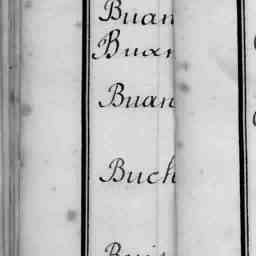 Buan
Buan
Buan
Buch